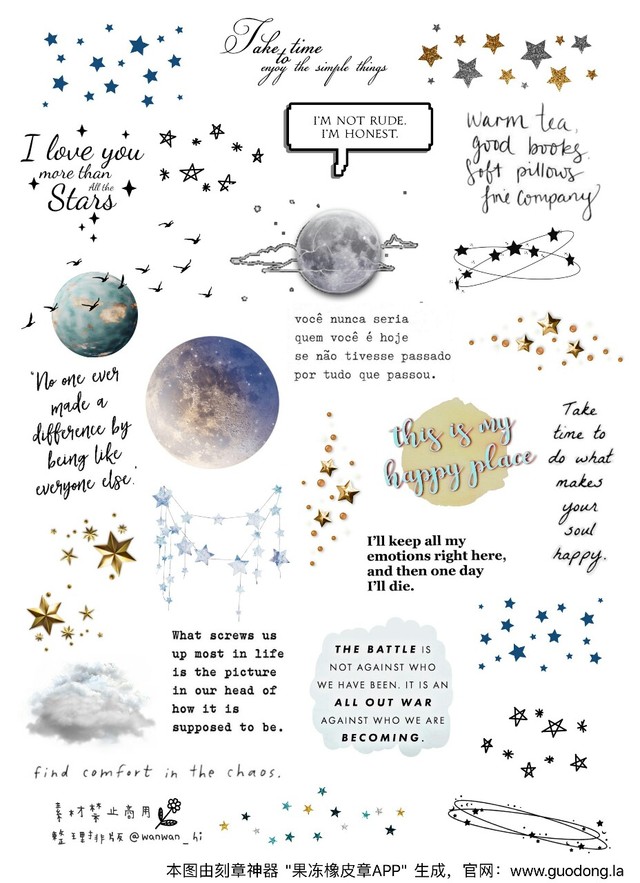 Take time
to
enjoy the simple things
I'M NOT RUDE.
I'M HONEST.
warm tea,
good books
soft pillows
fine company
I love you
more than
All the
Stars
você nunca seria
quem você é hoje
se não tivesse passado
por tudo que passou.
"No one ever
made a
difference by
being like
everyone else."
this is my
happy place
Take
time to
do what
makes
your
soul
happy.
I'll keep all my
emotions right here,
and then one day
I'll die.
What screws us
up most in life
is the picture
in our head of
how it is
supposed to be.
THE BATTLE IS
NOT AGAINST WHO
WE HAVE BEEN. IT IS AN
ALL OUT WAR
AGAINST WHO WE ARE
BECOMING.
find comfort in the chaos.
素材禁止商用
整理排版@wanwan_hi
本图由刻章神器 "果冻橡皮章APP" 生成，官网：www.guodong.la